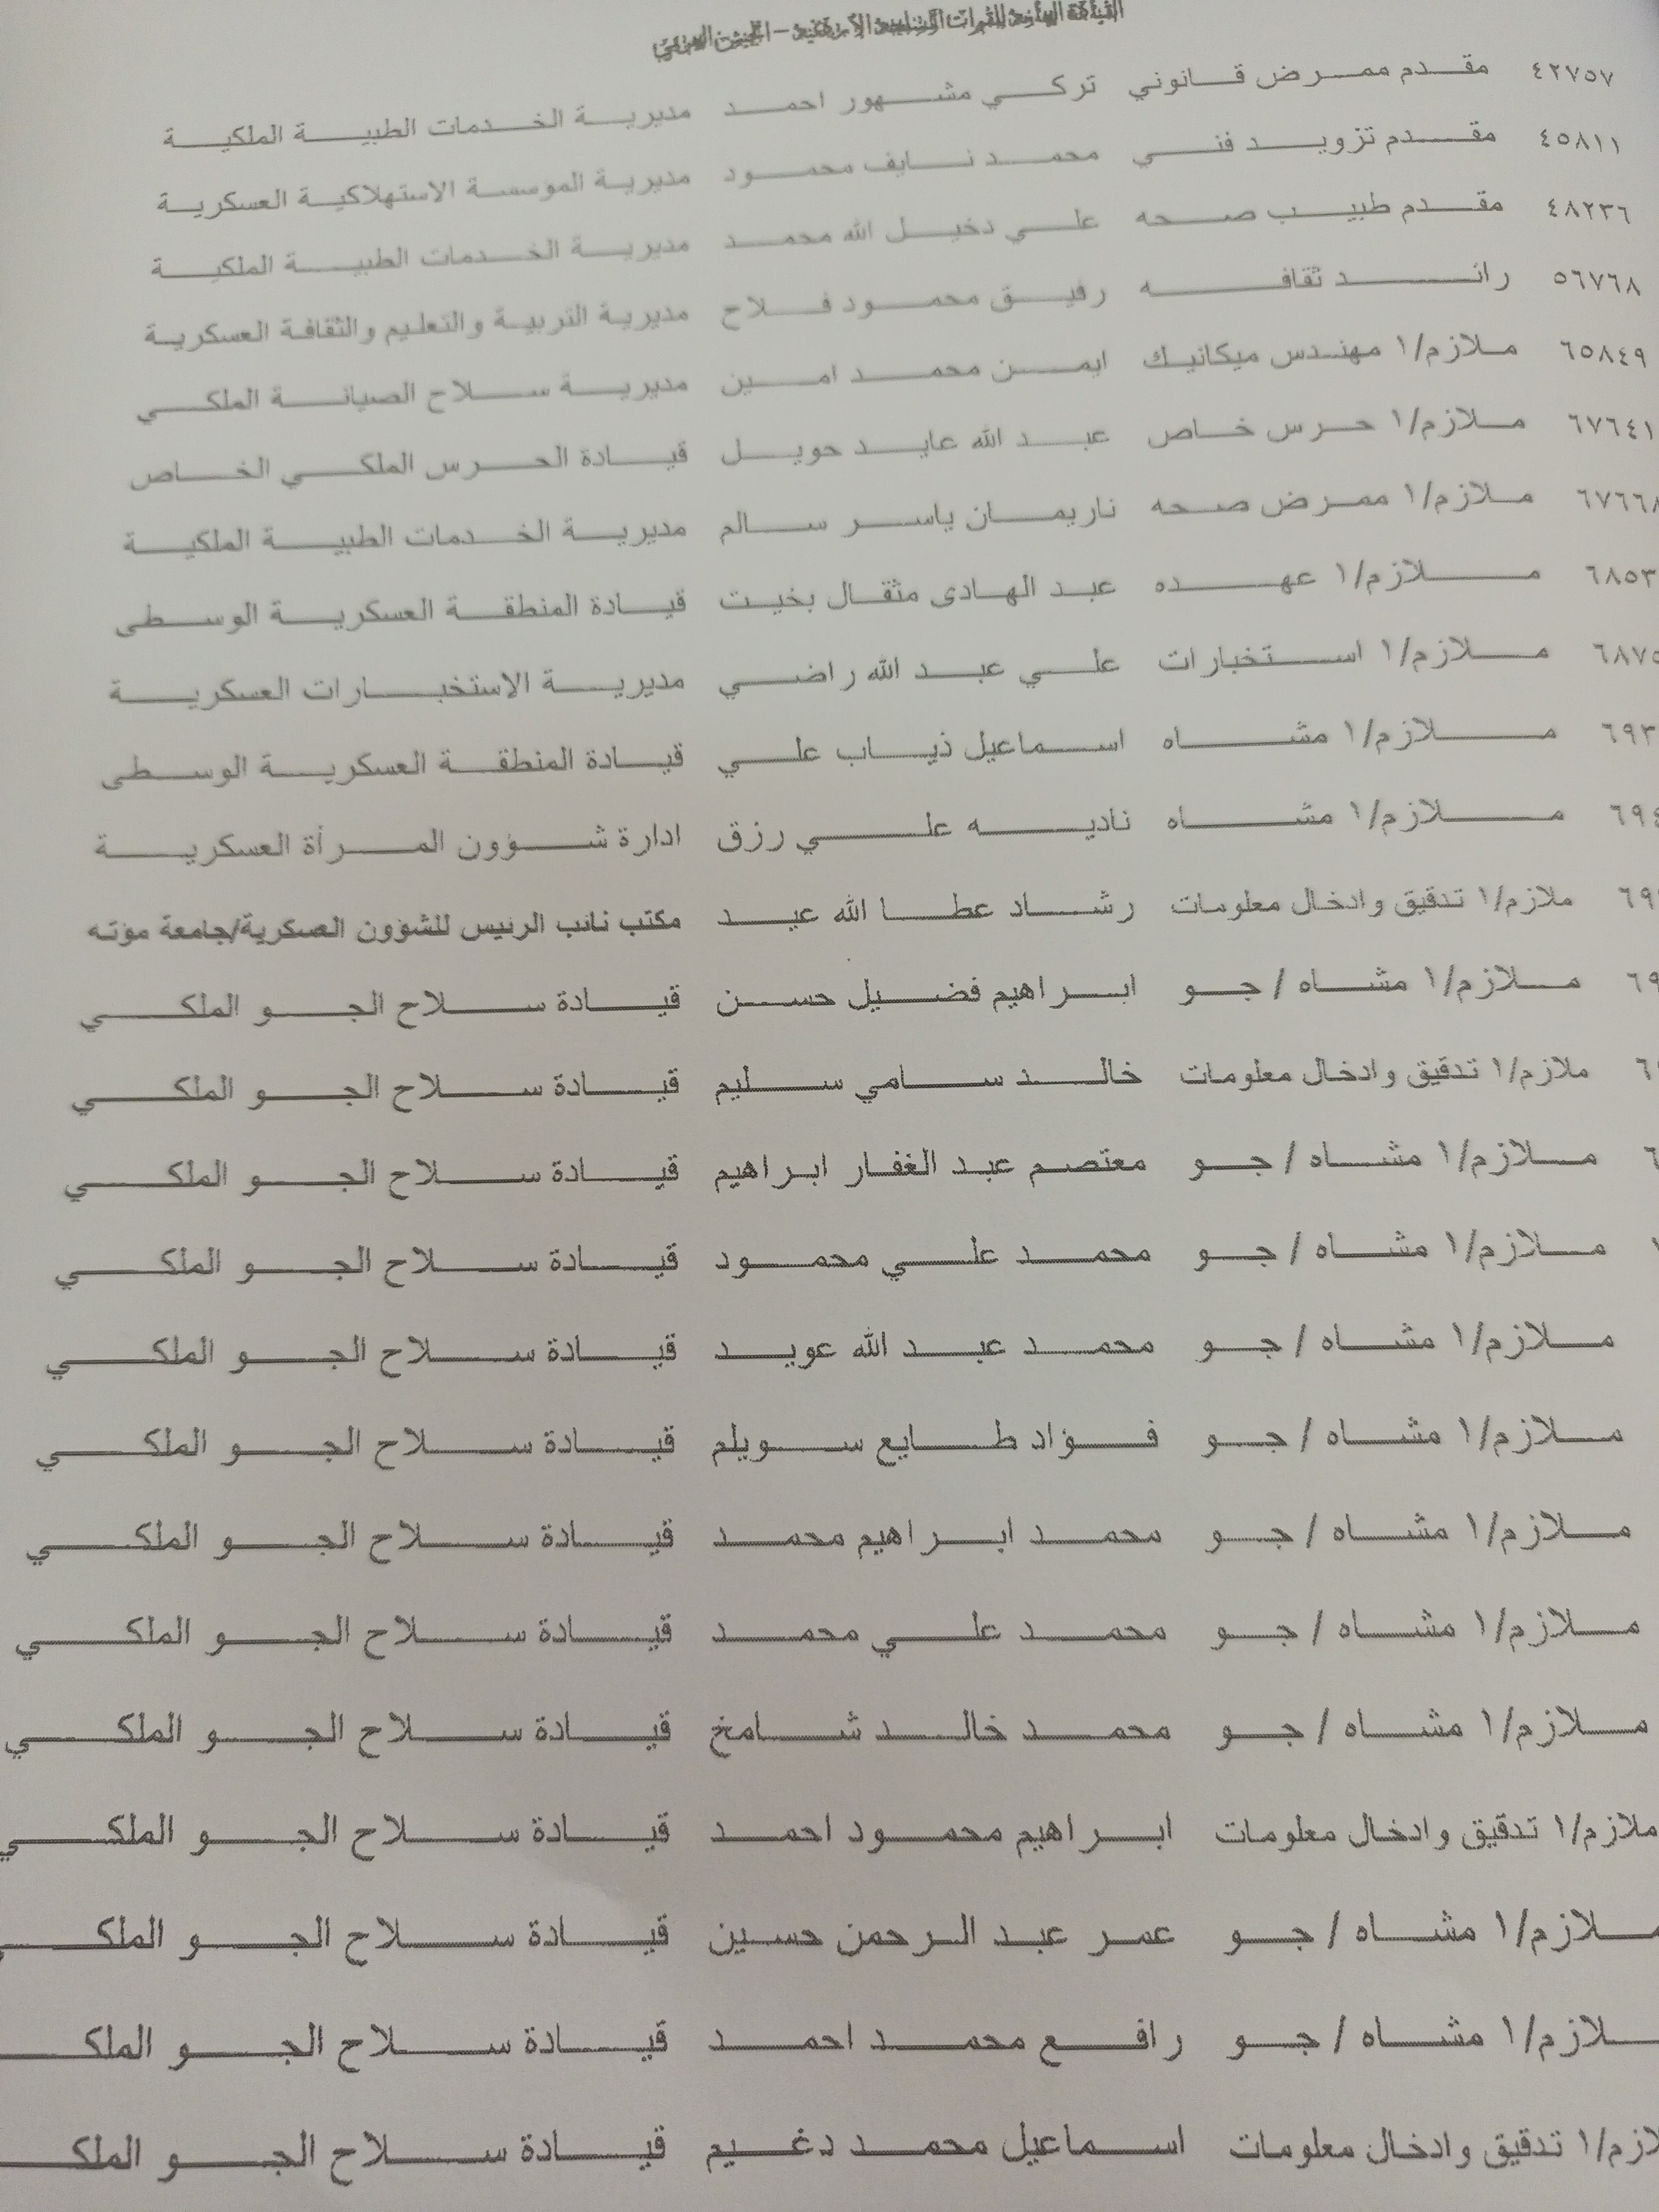 القيادة العامة للقوات المسلحة الأردنية - الجيش العربي
٤٢٧٥٧ مقدم ممرض قانوني تركي مشهور احمد مديرية الخدمات الطبية الملكية
٤٥٨١١ مقدم تزويد فني محمد نايف محمود مديرية المؤسسة الاستهلاكية العسكرية
٤٨٢٣٦ مقدم طبيب صحه علي دخيل الله محمد مديرية الخدمات الطبية الملكية
٥٦٧٦٨ رائد ثقافه رفيق محمود فلاح مديرية التربية والتعليم والثقافة العسكرية
٦٥٨٤٩ ملازم/١ مهندس ميكانيك ايمن محمد امين مديرية سلاح الصيانة الملكي
٦٧٦٤١ ملازم/١ حرس خاص عبد الله عايد حويل قيادة الحرس الملكي الخاص
٦٧٦٦٨ ملازم/١ ممرض صحه ناريمان ياسر سالم مديرية الخدمات الطبية الملكية
٦٨٥٣ ملازم/١ عهده عبد الهادى مثقال بخيت قيادة المنطقة العسكرية الوسطى
٦٨٧٥ ملازم/١ استخبارات علي عبد الله راضي مديرية الاستخبارات العسكرية
٦٩٣ ملازم/١ مشاه اسماعيل ذياب علي قيادة المنطقة العسكرية الوسطى
٦٩٤ ملازم/١ مشاه ناديه علي رزق ادارة شؤون المرأة العسكرية
٦٩ ملازم/١ تدقيق وادخال معلومات رشاد عطا الله عيد مكتب نائب الرئيس للشؤون العسكرية/جامعة مؤته
٦٩ ملازم/١ مشاه / جو ابراهيم فضيل حسن قيادة سلاح الجو الملكي
٦ ملازم/١ تدقيق وادخال معلومات خالد سامي سليم قيادة سلاح الجو الملكي
٦ ملازم/١ مشاه / جو معتصم عبد الغفار ابراهيم قيادة سلاح الجو الملكي
ملازم/١ مشاه / جو محمد علي محمود قيادة سلاح الجو الملكي
ملازم/١ مشاه / جو محمد عبد الله عويد قيادة سلاح الجو الملكي
ملازم/١ مشاه / جو فؤاد طايع سويلم قيادة سلاح الجو الملكي
ملازم/١ مشاه / جو محمد ابراهيم محمد قيادة سلاح الجو الملكي
ملازم/١ مشاه / جو محمد علي محمد قيادة سلاح الجو الملكي
ملازم/١ مشاه / جو محمد خالد شامخ قيادة سلاح الجو الملكي
ملازم/١ تدقيق وادخال معلومات ابراهيم محمود احمد قيادة سلاح الجو الملكي
ملازم/١ مشاه / جو عمر عبد الرحمن حسين قيادة سلاح الجو الملكي
لازم/١ مشاه / جو رافع محمد احمد قيادة سلاح الجو الملك
لازم/١ تدقيق وادخال معلومات اسماعيل محمد دغيم قيادة سلاح الجو الملك